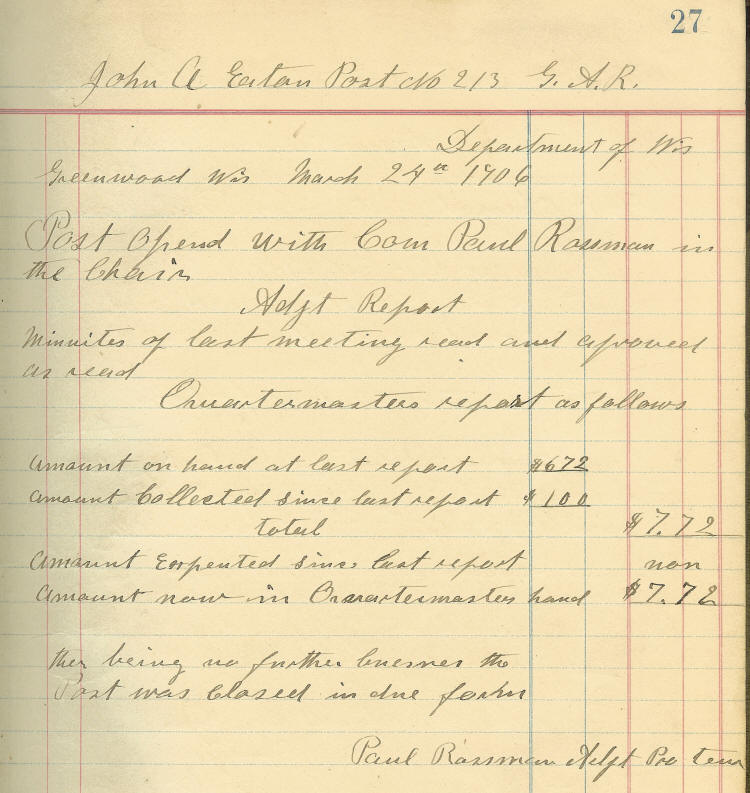 27
John A Eaton Post No 213 G. A. R.
Department of Wis
Greenwood Wis March 24th 1906
Post Opend with Com Paul Rossman in
the Chair
Adjt Report
Minuites of last meeting read and aproved
as read
Quartermasters report as follows
Amount on hand at last report $672
Amount Collected since last report $100
total $7.72
Amount Expented since last report non
Amount now in Quartermasters hand $7.72
ther being no further buesnes the
Post was Closed in due form
Paul Rossman Adjt Pro tem